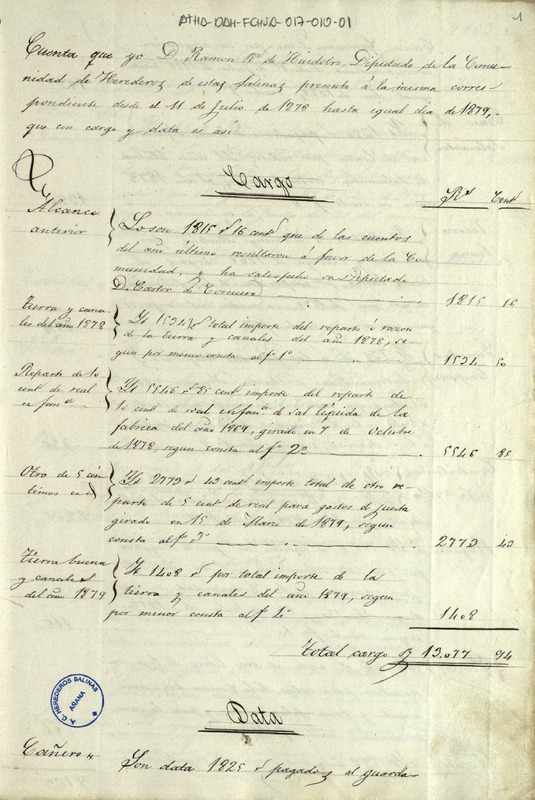 ATHA-DAH-FCHSA-017-010-01
1
Cuenta que yo D. Ramon Rz de Huidobro, Diputado de la Comu-
nidad de Herederos de estas Salinas presento á la misma corres-
pondiente desde el 11 de Julio de 1878 hasta igual dia de 1879,-
que con cargo y data es asi
Cargo
Rs Cents
Alcance anterior
Lo son 1815 rs 16 cents que de las cuentas
del año último resultaron á favor de la Co-
munidad, y ha satisfecho su diputado
D. Castor de Corcuera 1815 16
Tierra y cana-
les del año 1878
Yt 1534 rs total importe del reparto á razon
de la tierra y canales del año 1878, se-
gun por menor consta al fo 1o 1534 50
Reparto de 10
cents de real
en fana
Yt 5546 rs 85 cents importe del reparto de
10 cents de real en fana de sal líquida de la
fabrica del año 1867, girado en 7 de Octubre
de 1878, segun consta al fo 2o 5546 85
Otro de 5 cén-
timos en
Yt 2773 rs 43 cents importe total de otro re-
parto de 5 cents de real para gastos de junta
girado en 15 de Marzo de 1879, segun
consta al fo 3o 2773 43
Tierra buena
y canales
del año 1879
Yt 1408 rs por total importe de la
tierra y canales del año 1879, segun
por menor consta al fo 4o 1408
Total cargo rs 13.077 94
A. C. HEREDEROS SALINAS
AÑANA
Data
Cañero
Son data 1825 rs pagados al guarda